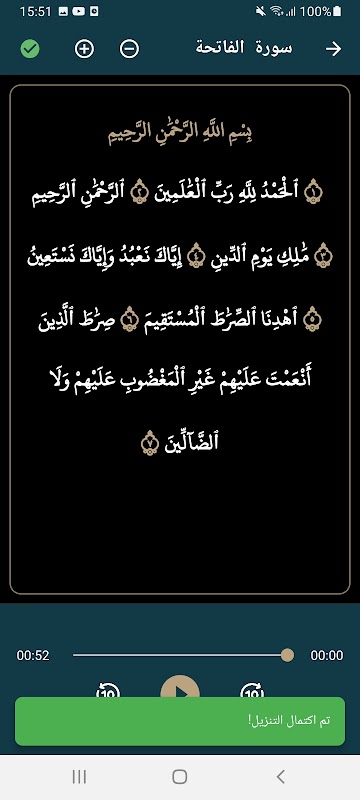 15:51 100%
سورة الفاتحة
بِسْمِ اللَّهِ الرَّحْمَٰنِ الرَّحِيمِ
۝١ ٱلْحَمْدُ لِلَّهِ رَبِّ ٱلْعَٰلَمِينَ ۝٢ ٱلرَّحْمَٰنِ ٱلرَّحِيمِ
۝٣ مَٰلِكِ يَوْمِ ٱلدِّينِ ۝٤ إِيَّاكَ نَعْبُدُ وَإِيَّاكَ نَسْتَعِينُ
۝٥ ٱهْدِنَا ٱلصِّرَٰطَ ٱلْمُسْتَقِيمَ ۝٦ صِرَٰطَ ٱلَّذِينَ
أَنْعَمْتَ عَلَيْهِمْ غَيْرِ ٱلْمَغْضُوبِ عَلَيْهِمْ وَلَا
ٱلضَّآلِّينَ ۝٧
00:52 00:00
10 10
تم اكتمال التنزيل!